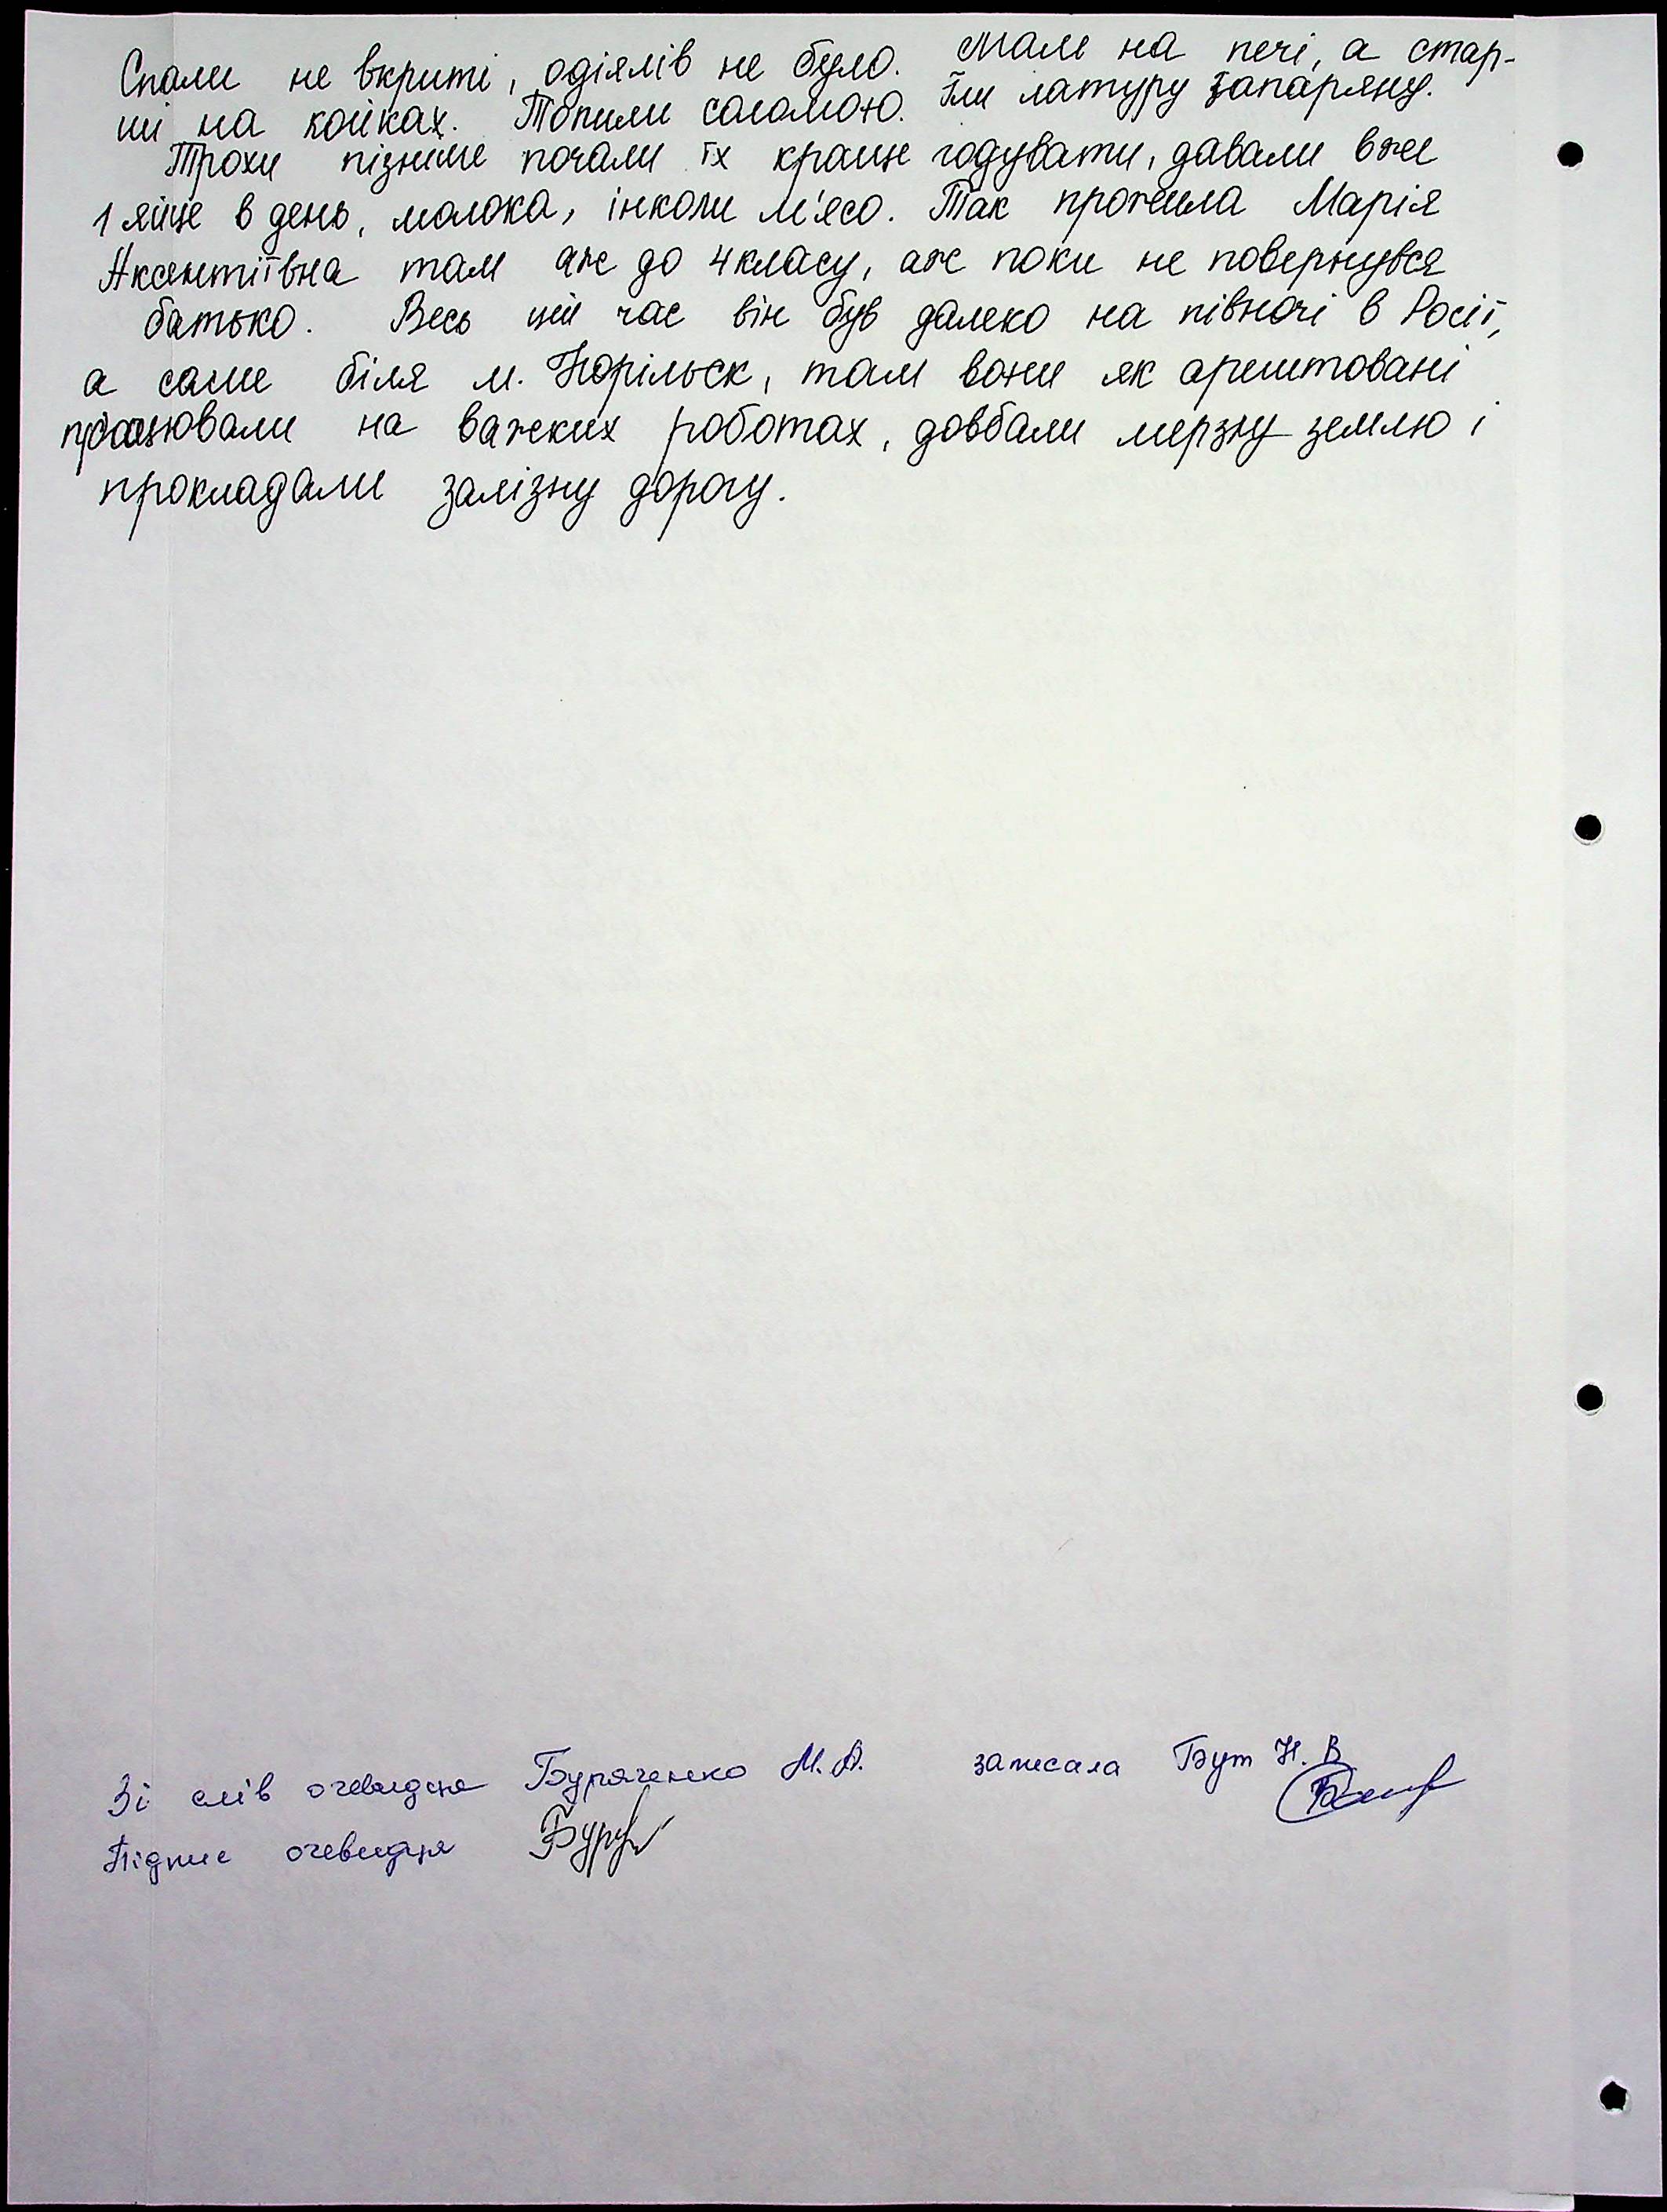 Спали не вкриті, одіялів не було. Малі на печі, а стар-
ші на койках. Топили соломою. Їли латуру запаряну.
Трохи пізніше почали їх краще годувати, давали вже
1 яйце в день, молока, інколи м'ясо. Так прожила Марія
Аксентіївна там аж до 4 класу, аж поки не повернувся
батько. Весь цей час він був далеко на півночі в Росії,
а саме біля м. Норільск, там вони як арештовані
працювали на важких роботах, довбали мерзлу землю і
прокладали залізну дорогу.
Зі слів очевидця Буряченко М.А. записала Бут Н.В
Підпис очевидця